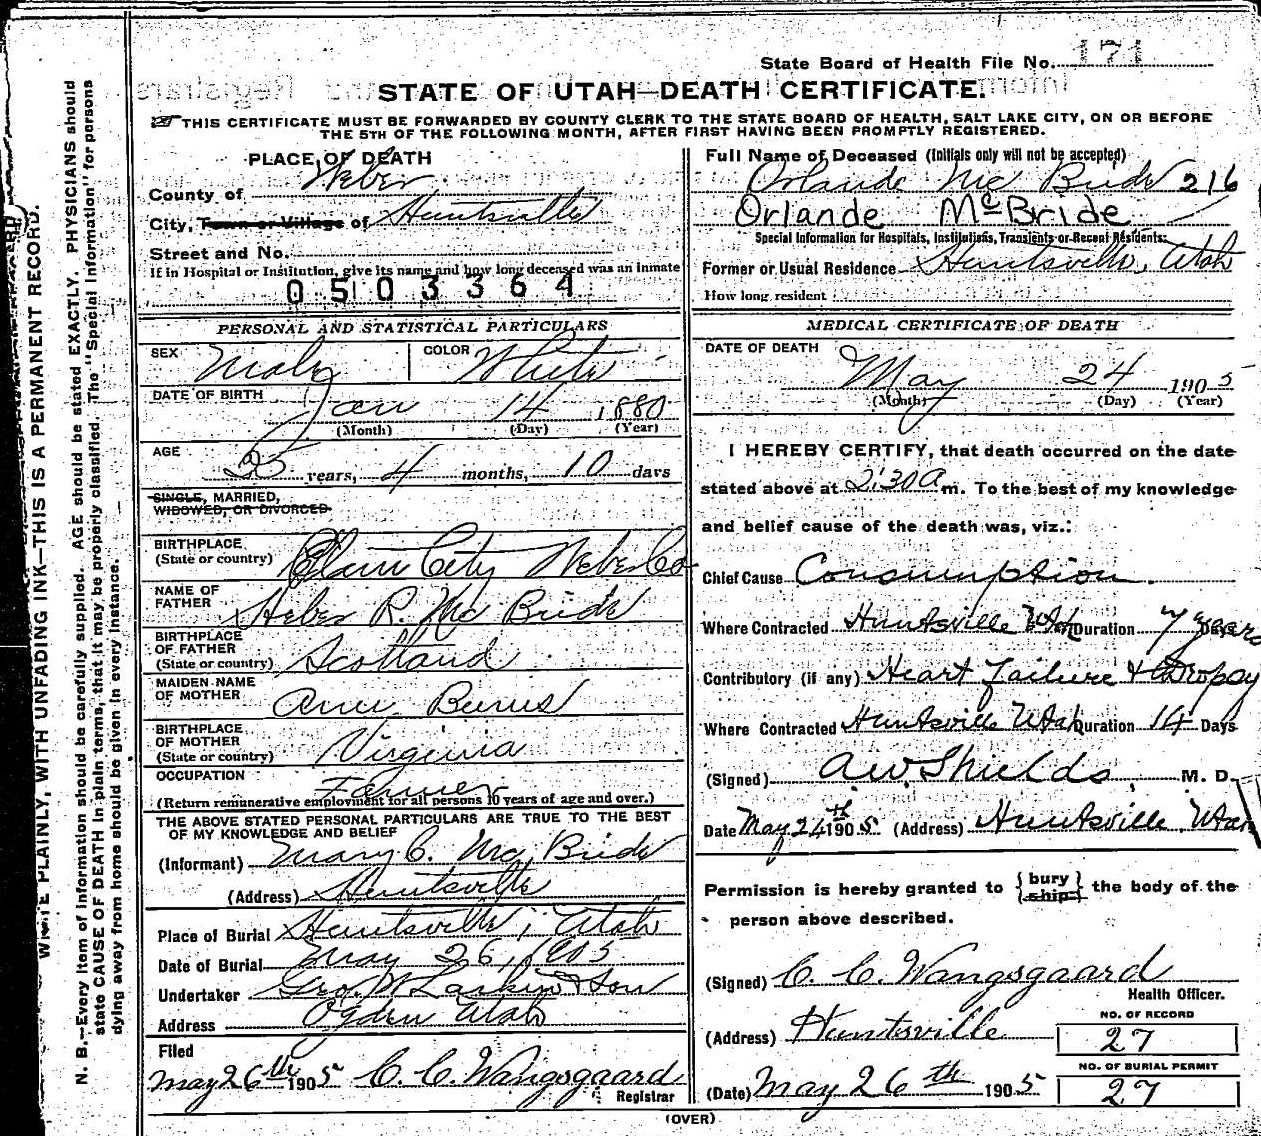 State Board of Health File No. 171
STATE OF UTAH—DEATH CERTIFICATE.
THIS CERTIFICATE MUST BE FORWARDED BY COUNTY CLERK TO THE STATE BOARD OF HEALTH, SALT LAKE CITY, ON OR BEFORE
THE 5TH OF THE FOLLOWING MONTH, AFTER FIRST HAVING BEEN PROMPTLY REGISTERED.
WRITE PLAINLY, WITH UNFADING INK—THIS IS A PERMANENT RECORD.
N. B.—Every item of information should be carefully supplied. AGE should be stated EXACTLY. PHYSICIANS should
state CAUSE OF DEATH in plain terms, that it may be properly classified. The "Special Information" for persons
dying away from home should be given in every instance.
PLACE OF DEATH
County of Weber
City, Town or Village of Huntsville
Street and No.
If in Hospital or Institution, give its name and how long deceased was an inmate
0503364
PERSONAL AND STATISTICAL PARTICULARS
SEX Male COLOR White
DATE OF BIRTH Jan 14 1880
(Month) (Day) (Year)
AGE 25 years, 4 months, 10 days
SINGLE, MARRIED,
WIDOWED, OR DIVORCED
BIRTHPLACE
(State or country) Plain City Weber Co
NAME OF
FATHER Heber R. Mc Bride
BIRTHPLACE
OF FATHER
(State or country) Scotland
MAIDEN NAME
OF MOTHER Ann Burns
BIRTHPLACE
OF MOTHER
(State or country) Virginia
OCCUPATION Farmer
(Return remunerative employment for all persons 10 years of age and over.)
THE ABOVE STATED PERSONAL PARTICULARS ARE TRUE TO THE BEST
OF MY KNOWLEDGE AND BELIEF
(Informant) Mary C. Mc Bride
(Address) Huntsville
Place of Burial Huntsville, Utah
Date of Burial May 26, 1905
Undertaker Geo. W Larkin & Son
Address Ogden Utah
Filed
May 26th 1905 C. C. Wangsgaard
Registrar
Full Name of Deceased (Initials only will not be accepted)
Orlande Mc Bride 216
Orlande McBride
Special Information for Hospitals, Institutions, Transients or Recent Residents:
Former or Usual Residence Huntsville, Utah
How long resident
MEDICAL CERTIFICATE OF DEATH
DATE OF DEATH
May 24 1905
(Month) (Day) (Year)
I HEREBY CERTIFY, that death occurred on the date
stated above at 2:30 A m. To the best of my knowledge
and belief cause of the death was, viz.:
Chief Cause Consumption.
Where Contracted Huntsville Utah Duration 7 years Days
Contributory (if any) Heart failure & Dropsy
Where Contracted Huntsville Utah Duration 14 Days
(Signed) A W Shields, M. D.
Date May 24th 1905 (Address) Huntsville Utah
Permission is hereby granted to {bury ship} the body of the
person above described.
(Signed) C. C. Wangsgaard
Health Officer.
(Address) Huntsville
NO. OF RECORD
27
NO. OF BURIAL PERMIT
(Date) May 26th 1905 27
(OVER)